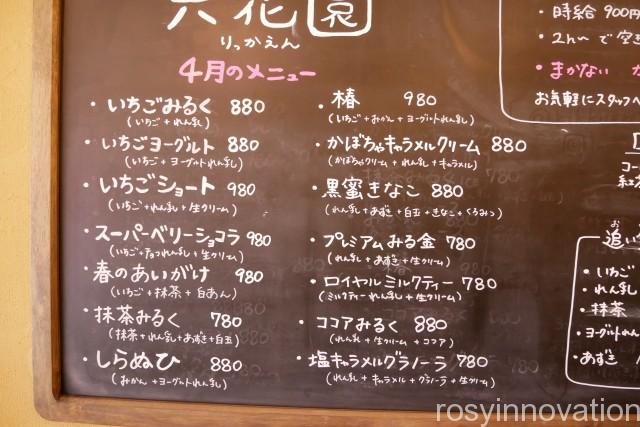 六花園
りっかえん
4月のメニュー
・いちごみるく 880
(いちご+れん乳)
・いちごヨーグルト 880
(いちご+ヨーグルトれん乳)
・いちごショート 980
(いちご+れん乳+生クリーム)
・スーパーベリーショコラ 980
(いちご+チョコれん乳+生クリーム)
・春のあいがけ 980
(いちご+抹茶+白あん)
・抹茶みるく 780
(抹茶+れん乳+あずき+白玉)
・しらぬひ 880
(みかん+ヨーグルトれん乳)
・椿 980
(いちご+みかん+ヨーグルトれん乳)
・かぼちゃキャラメルクリーム 880
(かぼちゃクリーム+れん乳+キャラメル)
・黒蜜きなこ 880
(れん乳+あずき+白玉+きなこ+くるみつ)
・プレミアムみる金 780
(れん乳+あずき+生クリーム)
・ロイヤルミルクティー 780
(ミルクティーれん乳+生クリーム)
・ココアみるく 880
(れん乳+生クリーム+ココア)
・塩キャラメルグラノーラ 780
(れん乳+キャラメル+グラノーラ+生クリーム)
・時給 900円
・2h〜で空き
・まかない
お気軽にスタッフ
コー
紅茶
追い
・いちご
・れん乳
・抹茶
・ヨーグルトれん
・あずき
rosyinnovation